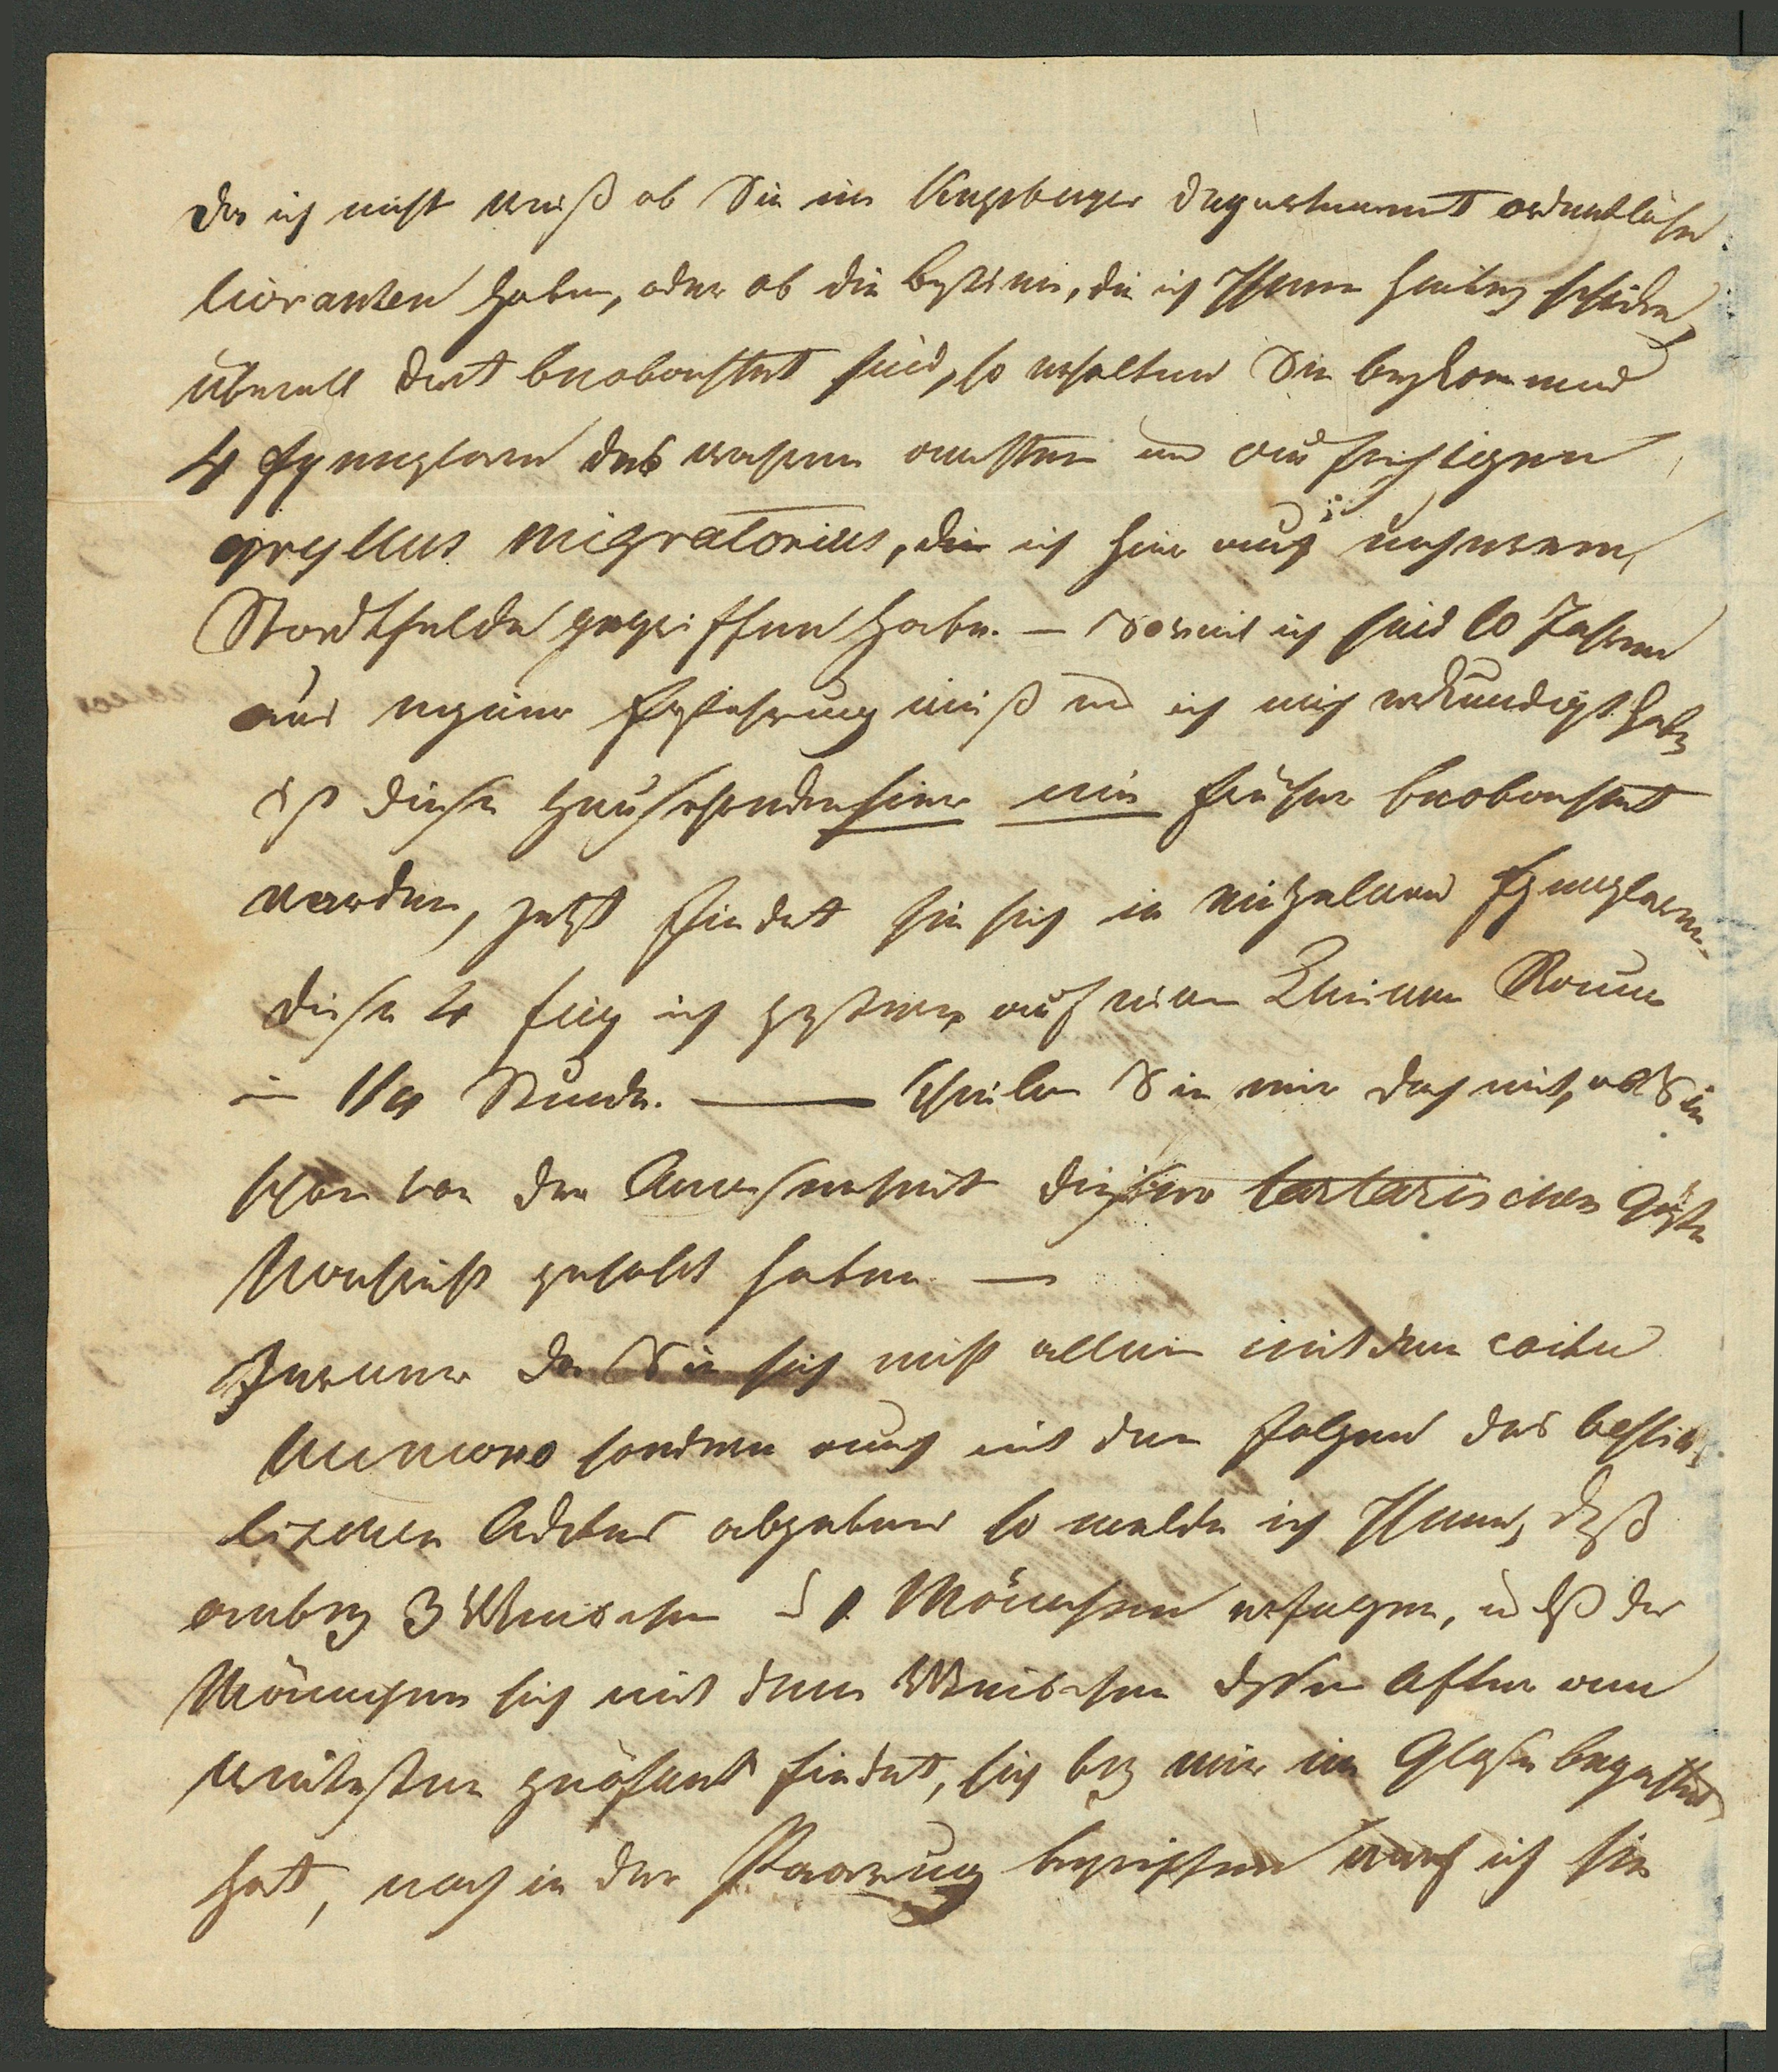 Da ich nicht weiß ob Sie im Augsburger Departement ordentliche
haben, oder ob die Bestien, die ich Ihnen hierbey schicke,
überall dort beobachtet sind, so erhalten Sie beykommend
4 Exemplare des wahren ächten und aufrichtigen
gryllus migratorius, die ich hier auf unserem
Stadtfelde gegriffen habe. — Soviel ich seit 10 Jahren
aus eigener Erfahrung weiß und ich mich erkundigt habe
ist diese Heuschrecke hier nie früher beobachtet
worden, jetzt findet sie sich in einzelnen Exemplaren
diese 4 fing ich gestern auf einem kleinen Raum
in 1/4 Stunde. — Theilen Sie mir doch mit, ob Sie
schon von der Anwesenheit dieser tartarischen Gäste
Nachricht gehabt haben —
Ferner da Sie sich nicht allein mit dem coitu
sondern auch mit den Folgen des bestia-
lischen Actus abgeben so melde ich Ihnen, daß
anbey 3 Weibchen u 1 Männchen erfolgen, u daß das
Männchen sich mit dem Weibchen dessen After am
weitesten geöfnet findet, sich bey mir im Glase begattet
hat, noch in der Paarung begriffen warf ich sie